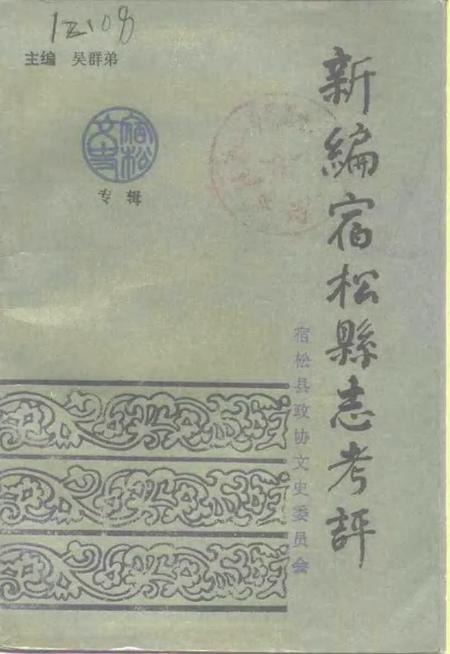 主编 吴群弟
宿松文史
专辑
新编宿松縣志考評
宿松县政协文史委员会